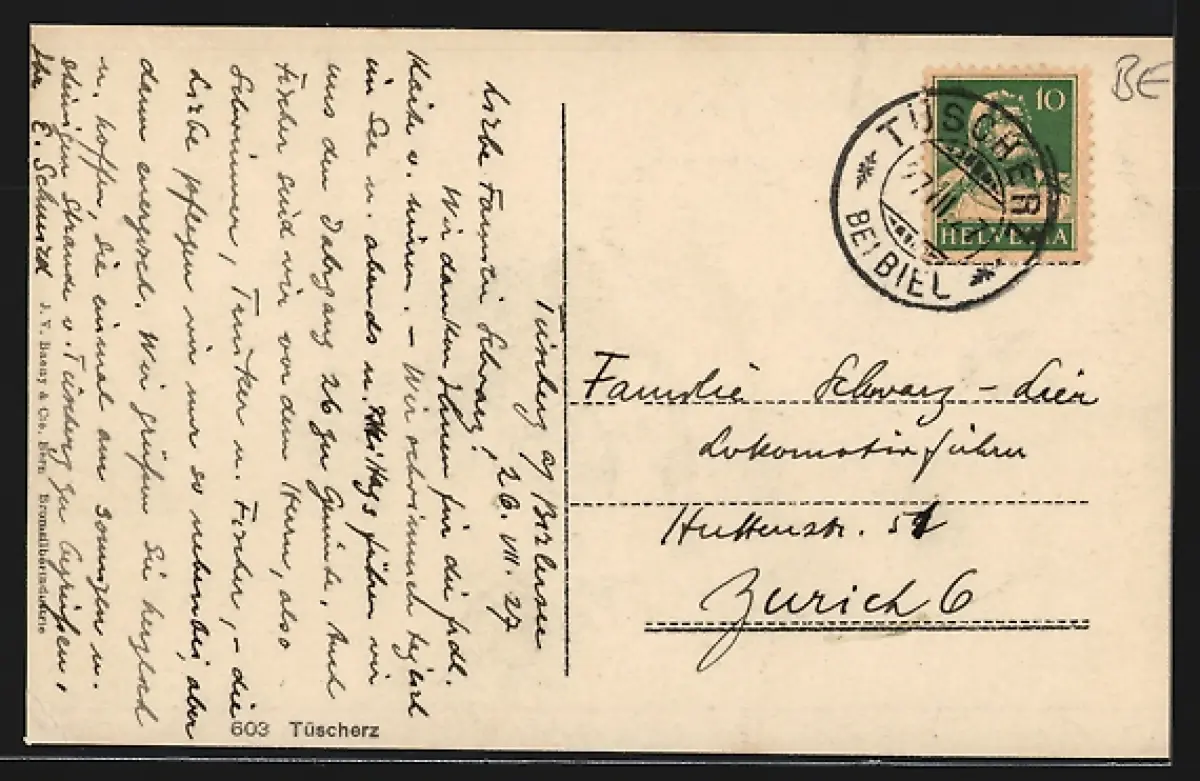 Tüscherz a/ Bielersee
26. VII. 27
Liebe Familie Schwarz!
Wir danken Ihnen für die frdl.
Karte v. - Wir schwimmen
im See u. abends u. Mittags führen wir
uns den Jahrgang 26 zu Gemüte. Auch
Fischer sind wir vor dem Herrn, also
Schwimmer, Trinker u. Fischer, - die
Liebe pflegen wir nur so nebenbei, aber
dann energisch. Wir grüßen Sie herzlich
u. hoffen, Sie einmal am sonnigen u.
steinigen Strande v. Tüscherz zu begrüßen.
Ihr E. Schmid
J. V. Baeny & Co. Bern, Bromsilberindustrie
603 Tüscherz
BE
10
HELVETIA
TÜSCHERZ
BEI BIEL
Familie Schwarz -
Lokomotivführer
Huttenstr. 51
Zürich 6